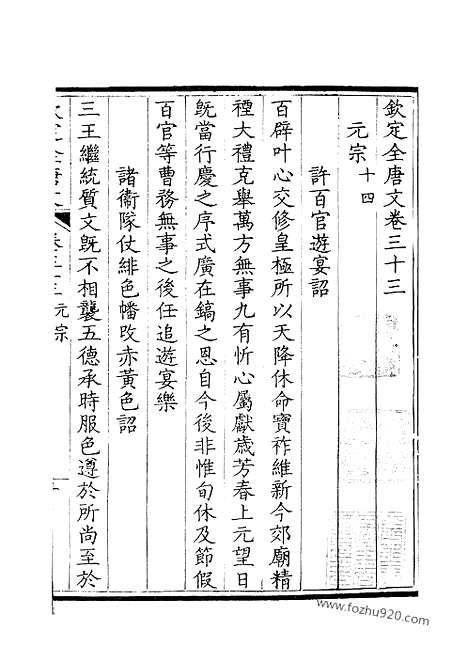 欽定全唐文卷三十三
元宗十四
許百官遊宴詔
百辟叶心交修皇極所以天降休命寶祚維新今郊廟精
禋大禮克舉萬方無事九有忻心屬獻歲芳春上元望日
旣當行慶之序式廣在鎬之恩自今後非惟旬休及節假
百官等曹務無事之後任追遊宴樂
諸衞隊仗緋色幡改赤黃色詔
三王繼統質文旣不相襲五德承時服色遵於所尚至於
欽定全唐文 卷三十三 元宗 一
www.fozhu920.com